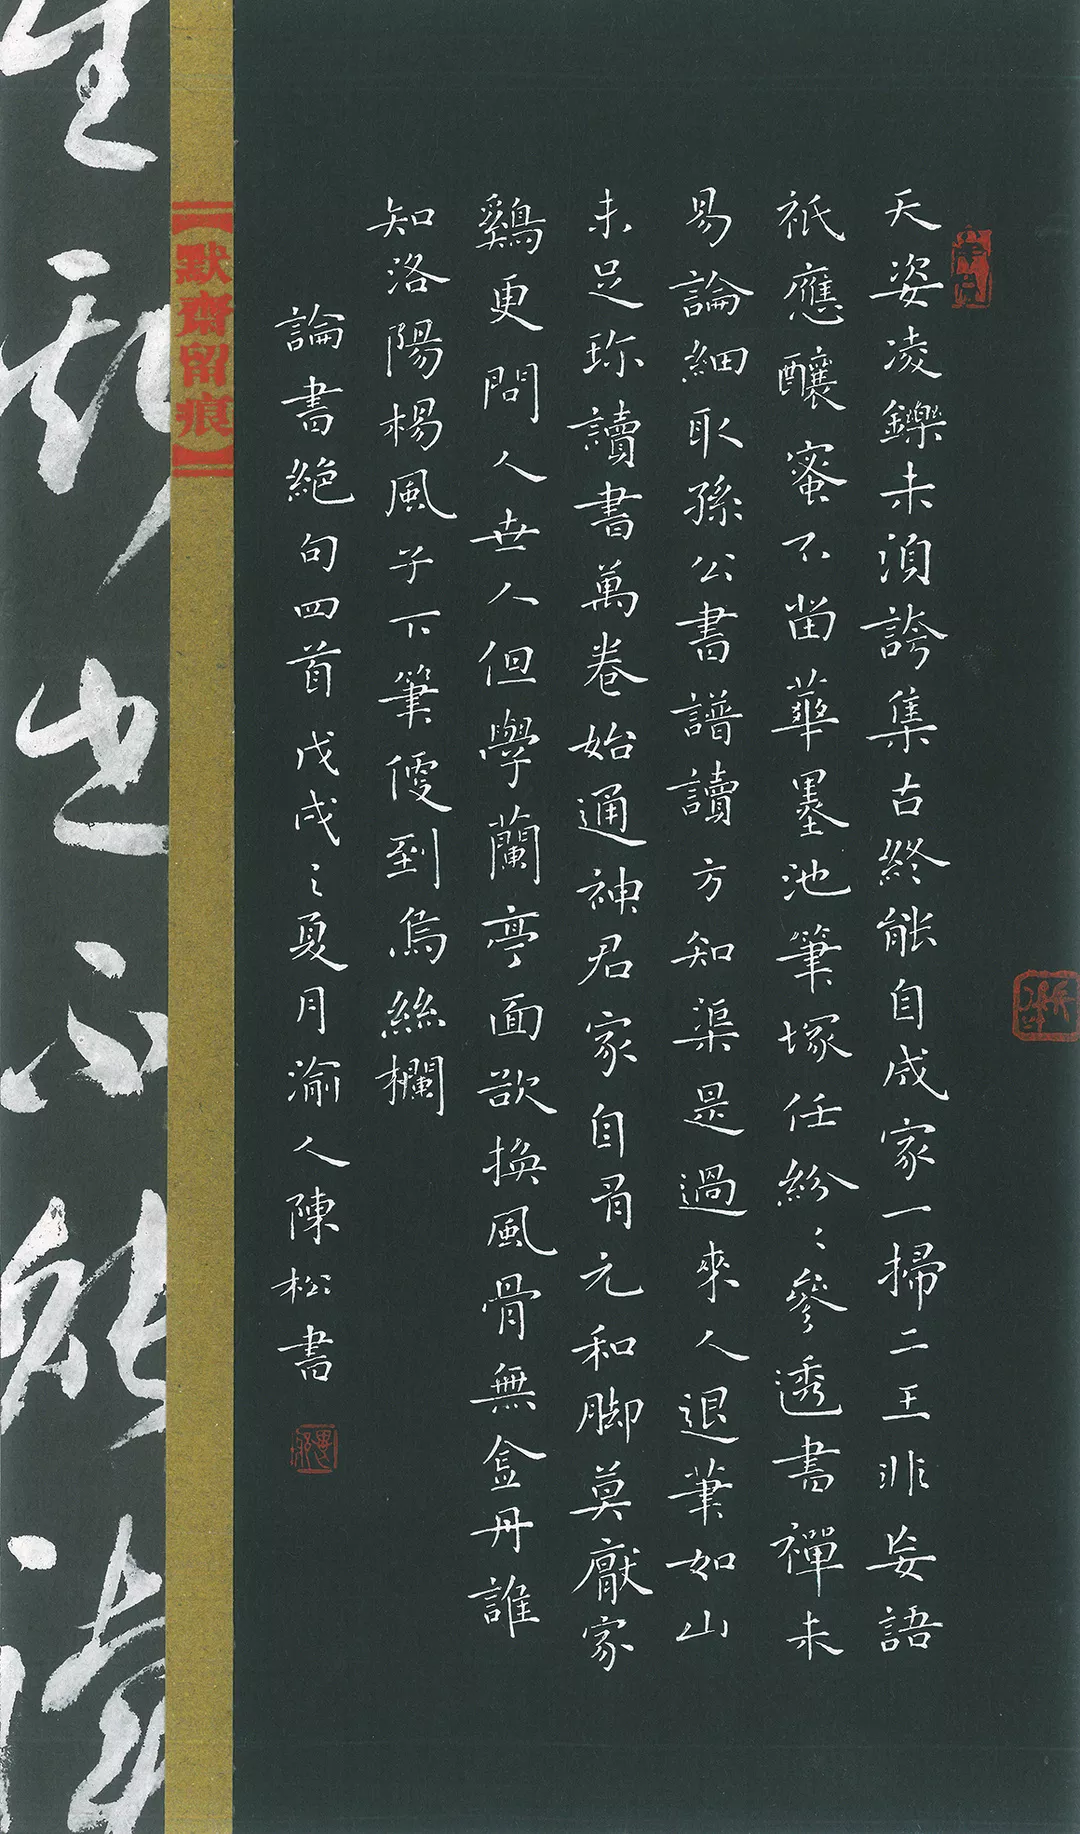 天姿凌鑠未須誇集古終能自成家一掃二王非妄語
祇應釀蜜不留華墨池筆塚任紛〻參透書禪未
易論細取孫公書譜讀方知渠是過來人退筆如山
未足珎讀書萬卷始通神君家自有元和脚莫厭家
鷄更問人世人但學蘭亭面欲換凡骨無金丹誰
知洛陽楊風子下筆便到烏絲欄
論書絕句四首戊戌之夏月渝人陳松書
【默齋留痕】